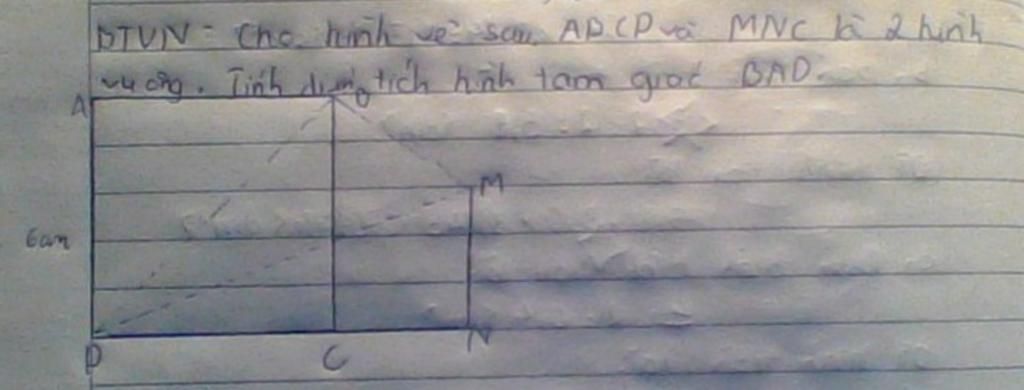 BTVN: Cho hình vẽ sau. ABCD và MNC là 2 hình
vuông. Tính diện tích hình tam giác BAD.
A B
M
6cm
D C N